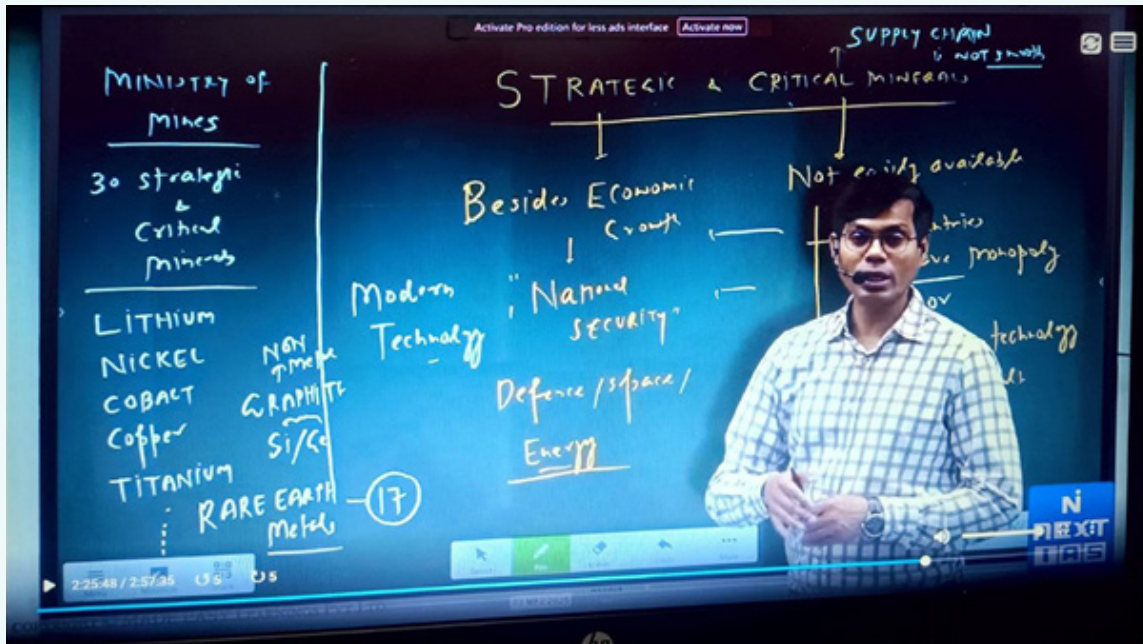 Activate Pro edition for less ads interface
Activate now
SUPPLY CHAIN
is NOT smooth
STRATEGIC & CRITICAL MINERALS
MINISTRY OF
Mines
30 strategic
&
Critical
minerals
LITHIUM
NICKEL
COBALT
Copper
TITANIUM
NON
metal
GRAPHITE
Si/Ge
RARE EARTH
Metals
17
Besides Economic
Growth
Modern
Technology
SECURITY"
Defence/space/
Energy
Not easily available
monopoly
technology
2:25:48 / 2:57:35
5
5
NEXT
IAS
hp